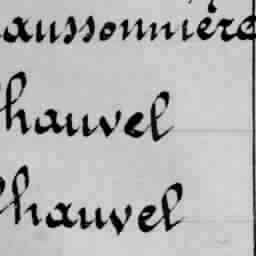 haussonnière
Chauvel
Chauvel